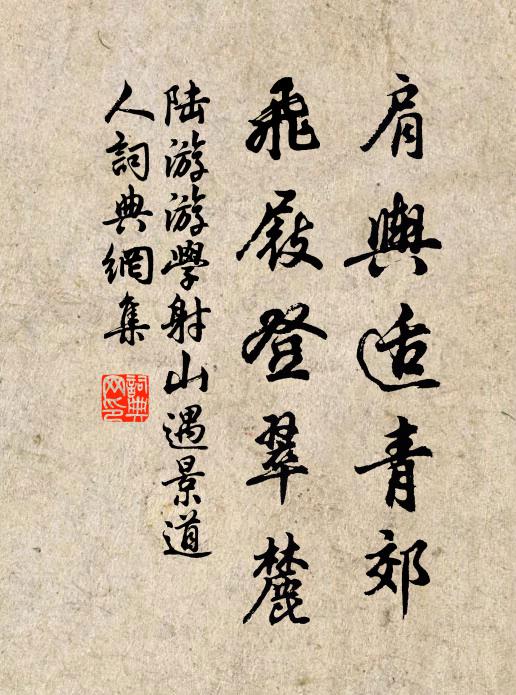 肩輿适青郊
飛屐登翠麓
陆游游學射山遇景道
人詞典網集
詞典网印